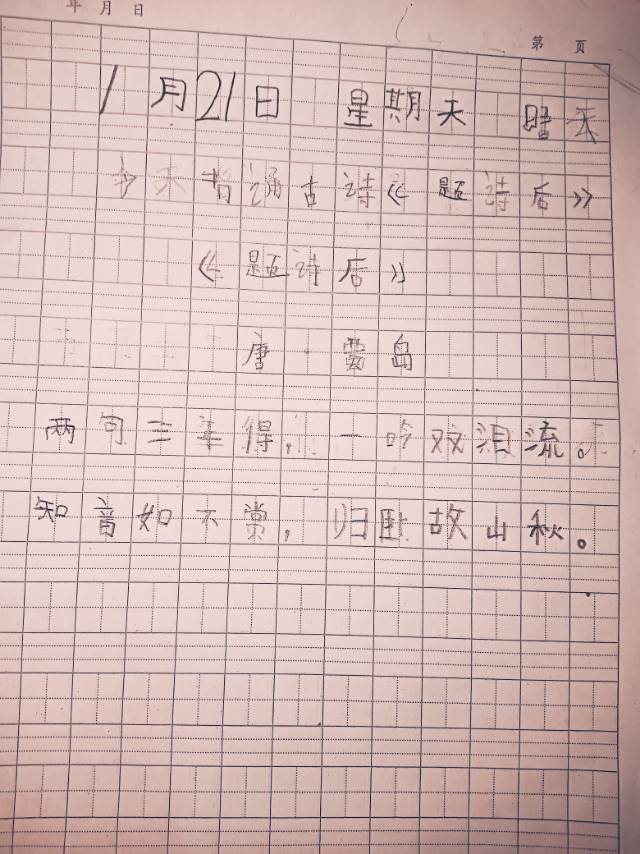 年 月 日
第 页
1月21日 星期天 晴天
今天背诵古诗《题诗后》
《题诗后》
唐·贾岛
两句三年得，一吟双泪流。
知音如不赏，归卧故山秋。